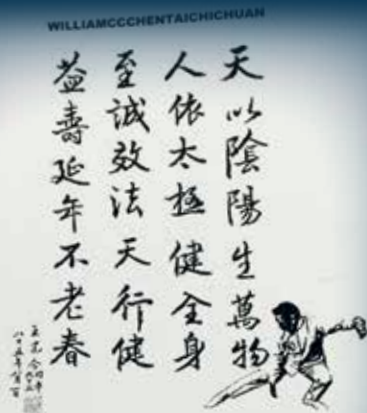 WILLIAMCCCHENTAICHICHUAN
天以陰陽生萬物
人依太極健全身
至誠效法天行健
益壽延年不老春